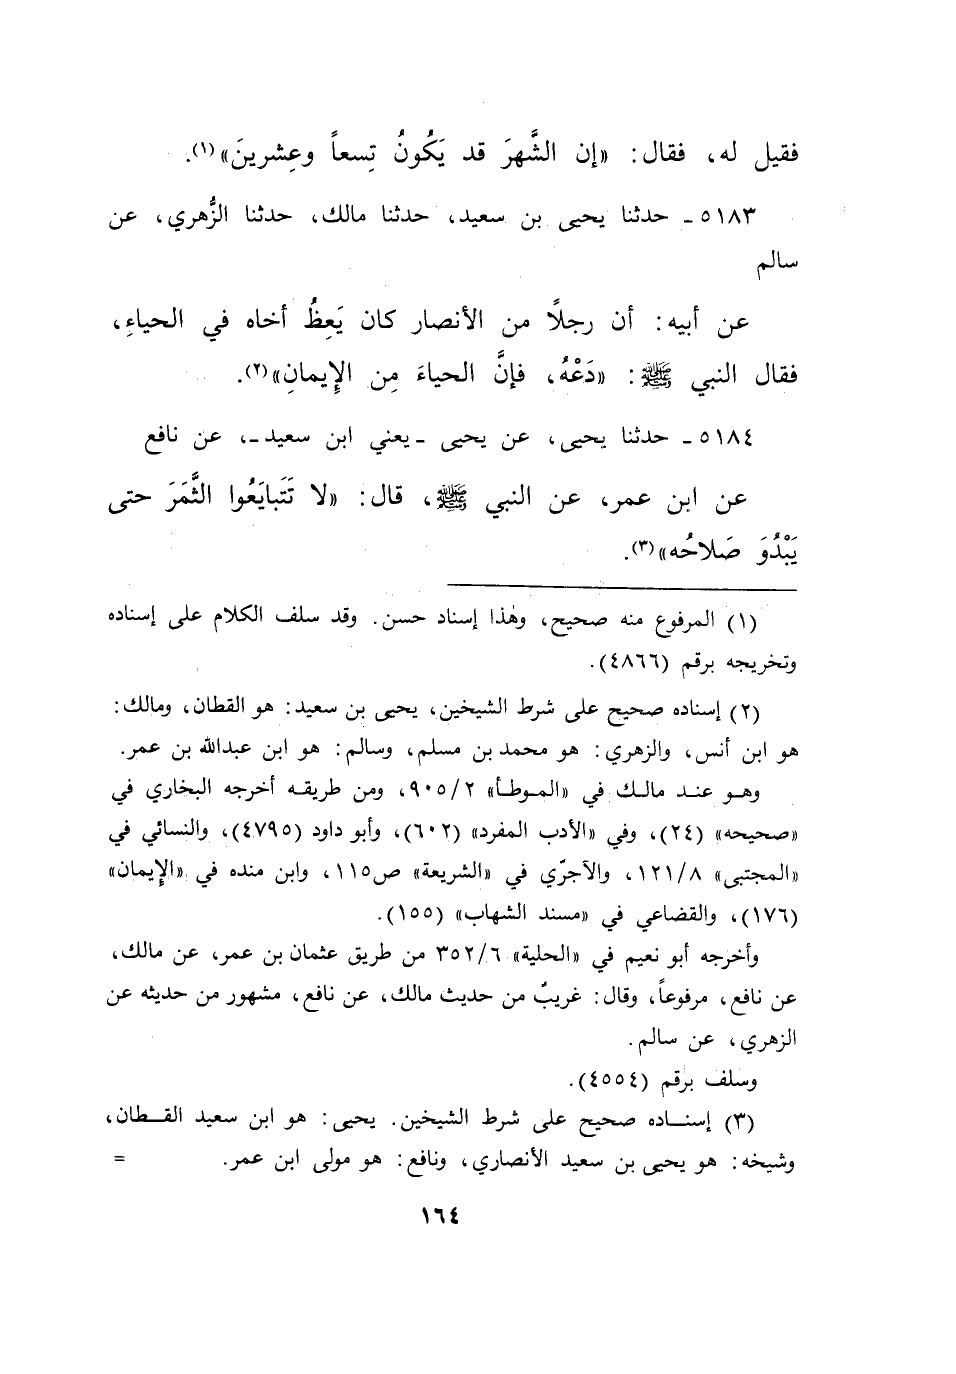 فقيل له، فقال: «إن الشَّهرَ قد يَكُونُ تِسعاً وعِشرينَ»(١).
٥١٨٣ـ حدثنا يحيى بن سعيد، حدثنا مالك، حدثنا الزُّهري، عن
سالم
عن أبيه: أن رجلًا من الأنصار كان يَعِظُ أخاه في الحياءِ،
فقال النبي ﷺ: «دَعْهُ، فإنَّ الحياءَ مِن الإِيمانِ»(٢).
٥١٨٤ـ حدثنا يحيى، عن يحيى ـيعني ابن سعيدـ، عن نافع
عن ابن عمر، عن النبي ﷺ، قال: «لا تَتَبايَعُوا الثَّمَرَ حتى
يَبْدُوَ صَلاحُه»(٣).
(١) المرفوع منه صحيح، وهٰذا إسناد حسن. وقد سلف الكلام على إسناده
وتخريجه برقم (٤٨٦٦).
(٢) إسناده صحيح على شرط الشيخين، يحيى بن سعيد: هو القطان، ومالك:
هو ابن أنس، والزهري: هو محمد بن مسلم، وسالم: هو ابن عبدالله بن عمر.
وهـو عنـد مالـك في «المـوطـأ» ٩٠٥/٢، ومن طريقـه أخرجه البخاري في
«صحيحه» (٢٤)، وفي «الأدب المفرد» (٦٠٢)، وأبو داود (٤٧٩٥)، والنسائي في
«المجتبى» ١٢١/٨، والآجرّي في «الشريعة» ص١١٥، وابن منده في «الإِيمان»
(١٧٦)، والقضاعي في «مسند الشهاب» (١٥٥).
وأخرجه أبو نعيم في «الحلية» ٣٥٢/٦ من طريق عثمان بن عمر، عن مالك،
عن نافع، مرفوعاً، وقال: غريبٌ من حديث مالك، عن نافع، مشهور من حديثه عن
الزهري، عن سالم.
وسلف برقم (٤٥٥٤).
(٣) إسنـــاده صحيح على شرط الشيخين. يحيى: هو ابن سعيد القـطان،
وشيخه: هو يحيى بن سعيد الأنصاري، ونافع: هو مولى ابن عمر. =
١٦٤